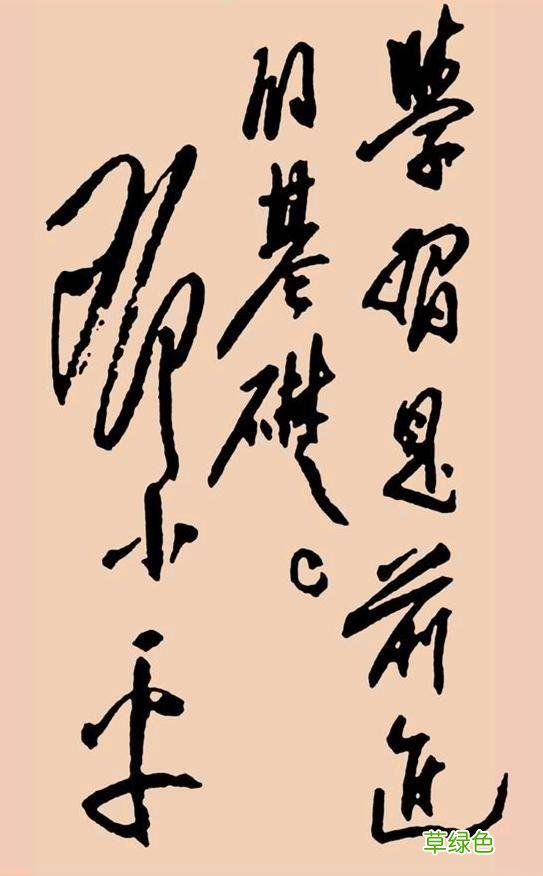 學習是前進
的基礎。
鄧小平
草绿色